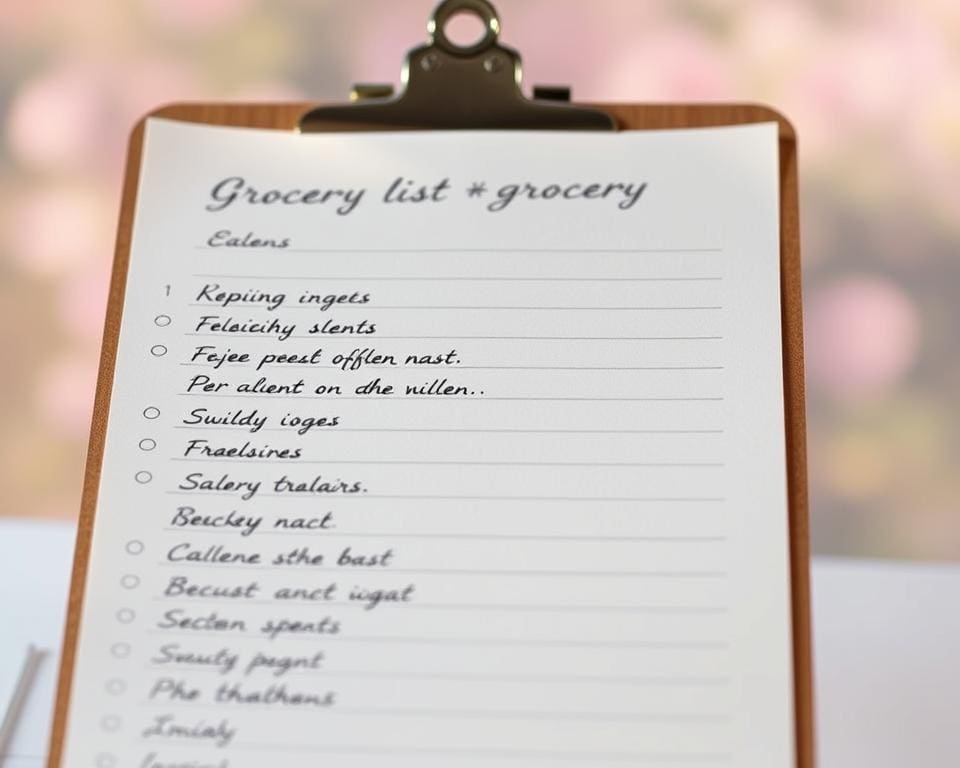 Grocery list *grocery
Ealens
1 Repiing ingets
Feleicihy slents
Fejee peest offlen nast.
Per alient on dhe nillen..
Swildy ioges
Fraelsires
Salery tralairs.
Beickey nact.
Callene sthe bast
Becust anct iugat
Secten spents
pegnt
Phe thathens